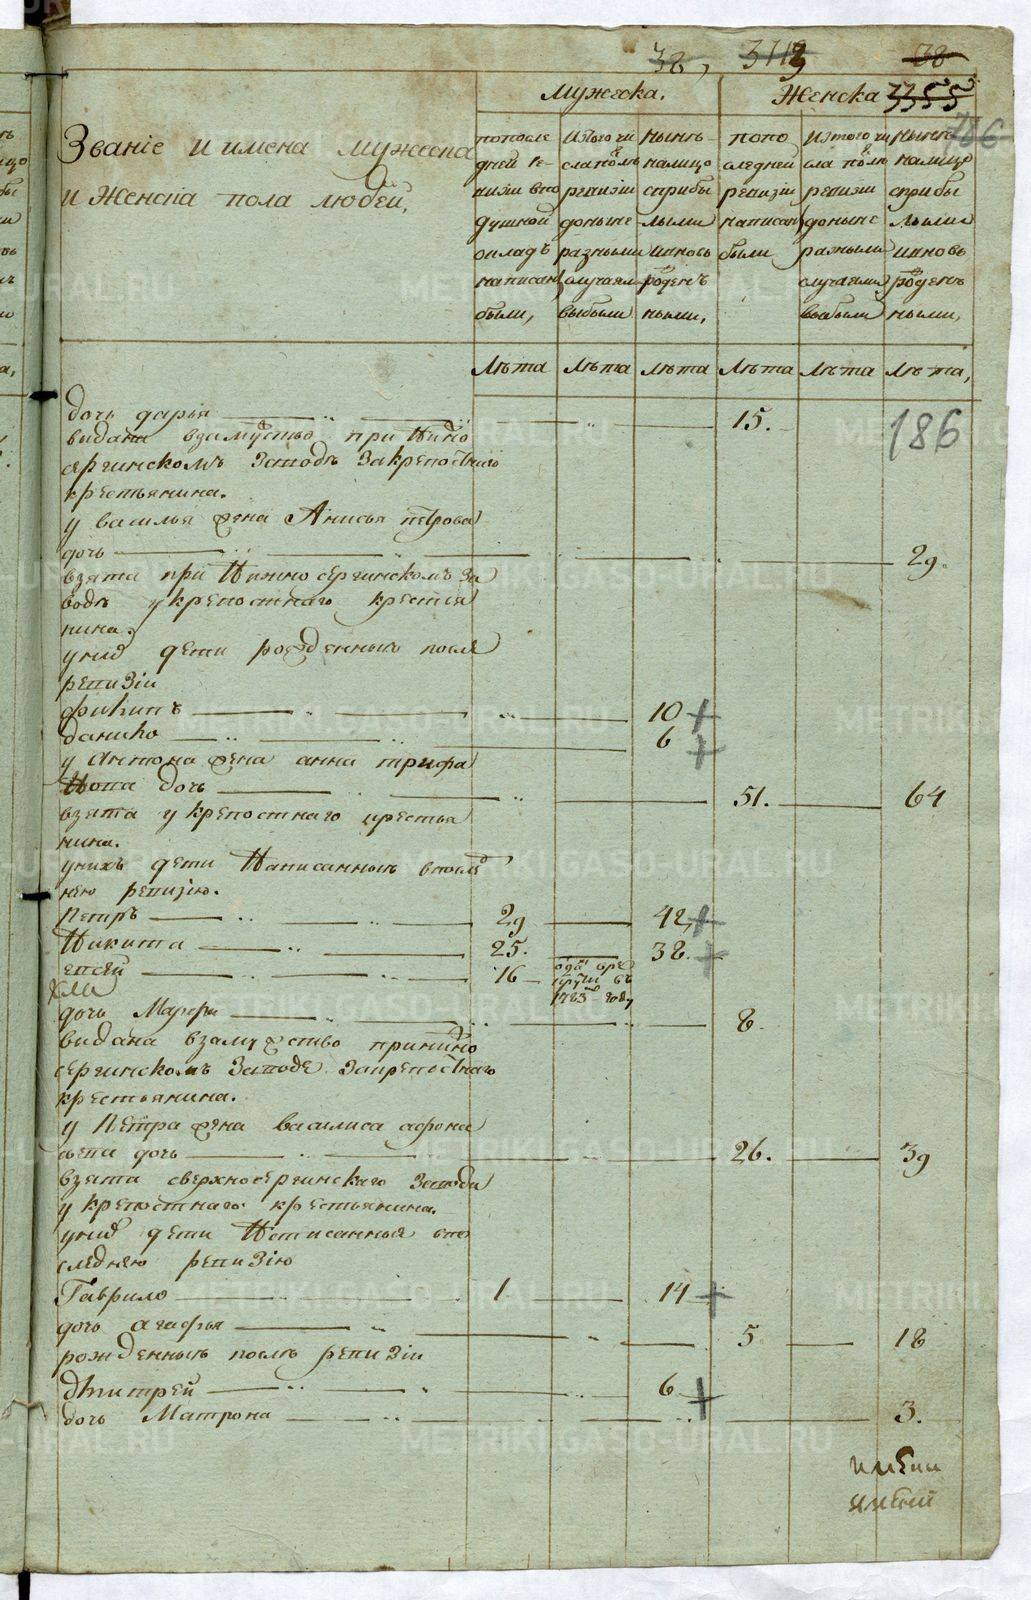 38,
3713
38
3355
186
Мужеска,
Женска
Званіе и имена мужеска
и женска пола людей,
по после
дней ре-
визіи вло
душной
окладъ
написан
были,
Изтого чи
сла после
ревизіи
доныне
разными
случаям
выбыли
Нынѣ
налицо
сприбы
лыми
ивновь
рожден
ными,
попо
следней
ревизіи
написан
были
Изтого чи
сла после
ревизіи
доныне
разными
случаями
выбыли
Нынѣ
налицо
сприбы
лыми
ивновь
рожден
ными,
Лѣта
Лѣта
Лѣта
Лѣта
Лѣта
Лѣта,
дочь дарья 15.
186
выдана взамужство при Нижно
сергинскомъ Заводѣ За крепостнаго
крестьянина.
у василья жена Анисья петрова
дочь 29.
взята при Нижно сергинскомъ за
водѣ у крепостнаго крестья
нина.
уних дети рожденные после
ревизіи
10
данило 6
у Антона жена анна трифа
нова дочь 51. 64
взята у крепостнаго крестья
нина.
унихъ дети Написанныя впослѣд
нею ревизію.
Петръ 29 42
Никита 25. 38.
евсей 16
1783 году
дочь Марфа 8.
выдана взамужство принижно
сергинскомъ Заводе Закрепостнаго
крестьянина.
у Петра жена василиса афона
сьева дочь 26. 39
взята сверхносергинскаго Завода
у крепостнаго крестьянина.
уних дети Написанныя впо
следнею ревизію
Гаврило 1 14
дочь агафья 5 18
рожденныя послѣ ревизіи
дмитрей 6
дочь Матрона 3.
METRIKI.GASO-URAL.RU